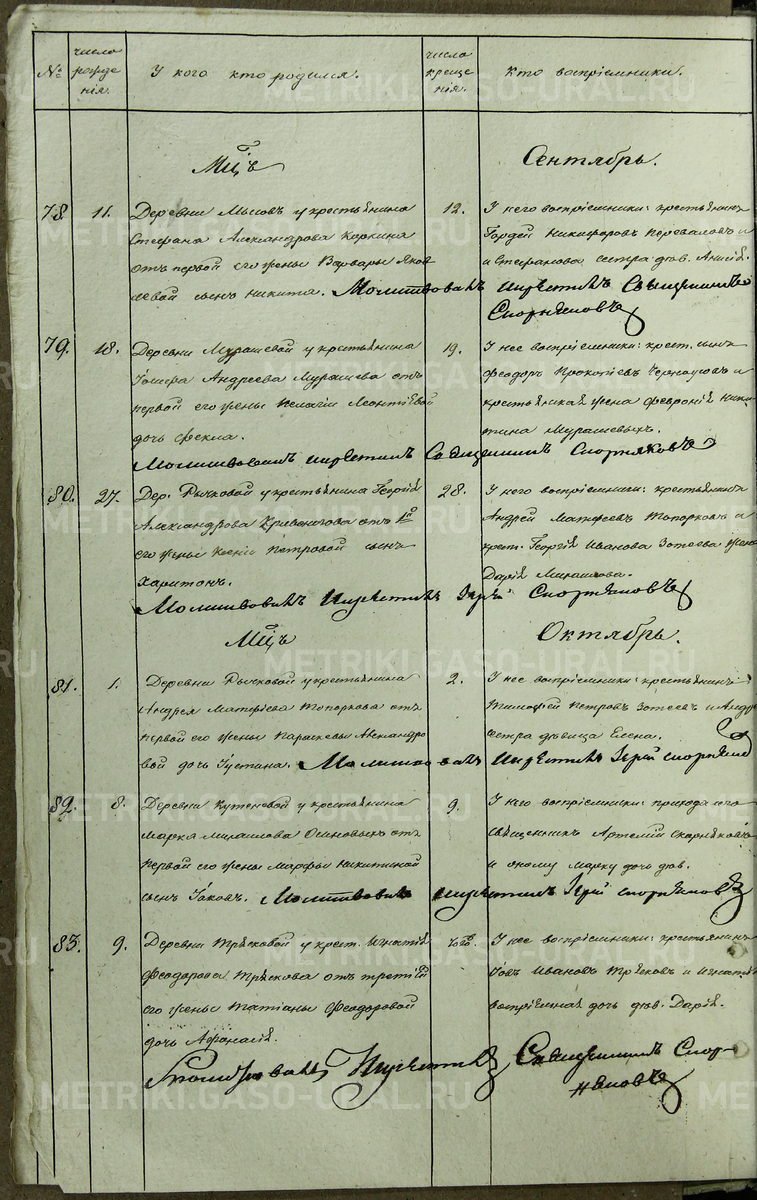 №
число рожде нія.
У кого кто родился.
число креще нія.
Кто воспріемники.
Мцъ
Сентябрь.
78. 11. Деревни Мысовъ у крестьянина
Стефана Александрова Коркина
отъ первой его жены Варвары Яков
левой сынъ Никита. Молитвовалъ
12. У него воспріемники: крестьянинъ
Гордей Никифоровъ Переваловъ и
и Стефанова сестра дѣв. Анисія.
и крестилъ Священникъ
Скорняковъ
79. 18. Деревни Мурашевой у крестьянина
Іосифа Андреева Мурашева отъ
первой его жены Пелагіи Леонтіевой
дочь Фекла.
Молитвовалъ и крестилъ Священникъ Скорняковъ
19. У нее воспріемники: крест. сынъ
Феодоръ Прокопіевъ и
крестьянская жена Февронія Ники
тина Мурашевыхъ.
80. 27. Дер. Рычковой у крестьянина Георгія
Александрова Кривоногова отъ 1й
его жены Ксеніи Петровой сынъ
Харитонъ.
Молитвовалъ и крестилъ Іерей Скорняковъ
28. У него воспріемники: крестьянинъ
Андрей Матфеевъ Топорковъ и
крест. Георгія Иванова Зотеева жена
Дарія Михаилова.
Мцъ
Октябрь.
81. 1. Деревни Рычковой у крестьянина
Андрея Матфіева Топоркова отъ
первой его жены Параскевы Александро
вой дочь Іустина. Молитвовалъ
2. У нее воспріемники: крестьянинъ
Тимофей Петровъ Зотеевъ и Андре
сестра дѣвица Елена.
и крестилъ Іерей Скорняковъ
82. 8. Деревни Кутеневой у крестьянина
Марка Михаилова Осиновыхъ отъ
первой его жены Марфы Никитиной
сынъ Іаковъ. Молитвовалъ
9. У него воспріемники: прихода сего
священникъ Артемій Скорняковъ
и оному Марку дочь дѣв.
и крестилъ Іерей Скорняковъ
83. 9. Деревни Трѣсковой у крест. Игнатія
Феодорова Трѣскова отъ третіей
его жены Татіаны Феодоровой
дочь Афанасія.
У нее воспріемники: крестьянинъ
Іовъ Ивановъ Трѣсковъ и Игнатія
воспріемная дочь дѣв. Дарія.
Молитвовалъ и крестилъ Священникъ Скор-
няковъ
METRIKI.GASO-URAL.RU